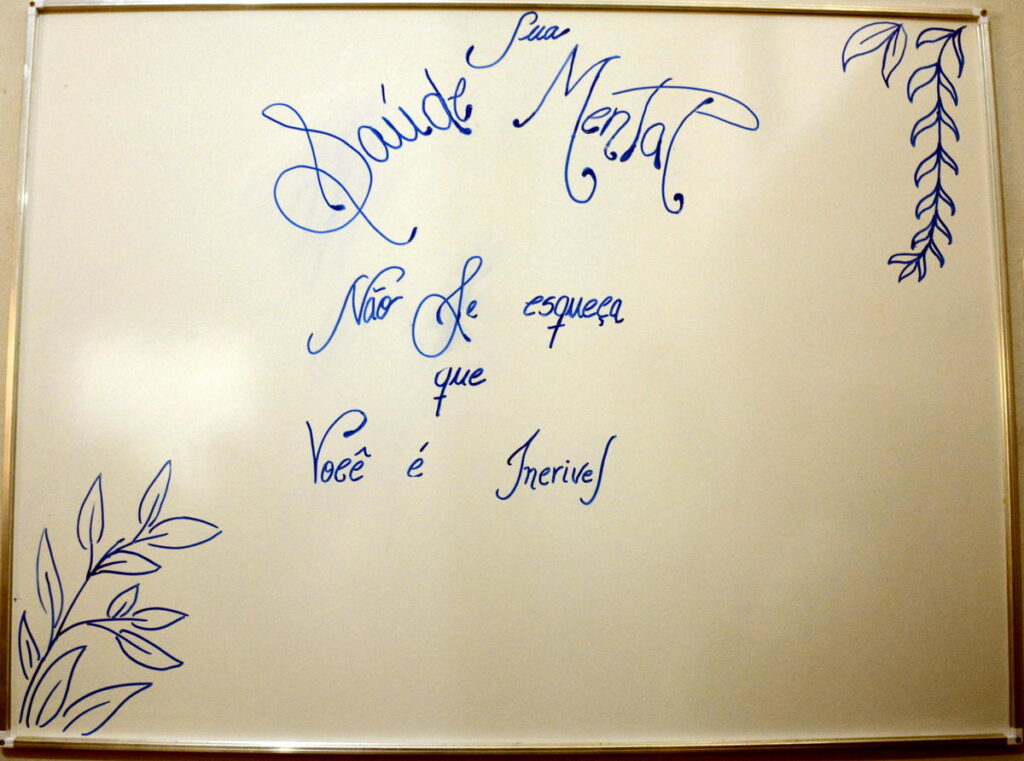 Sua
Saúde Mental
Não Se esqueça
que
Você é Incrivel